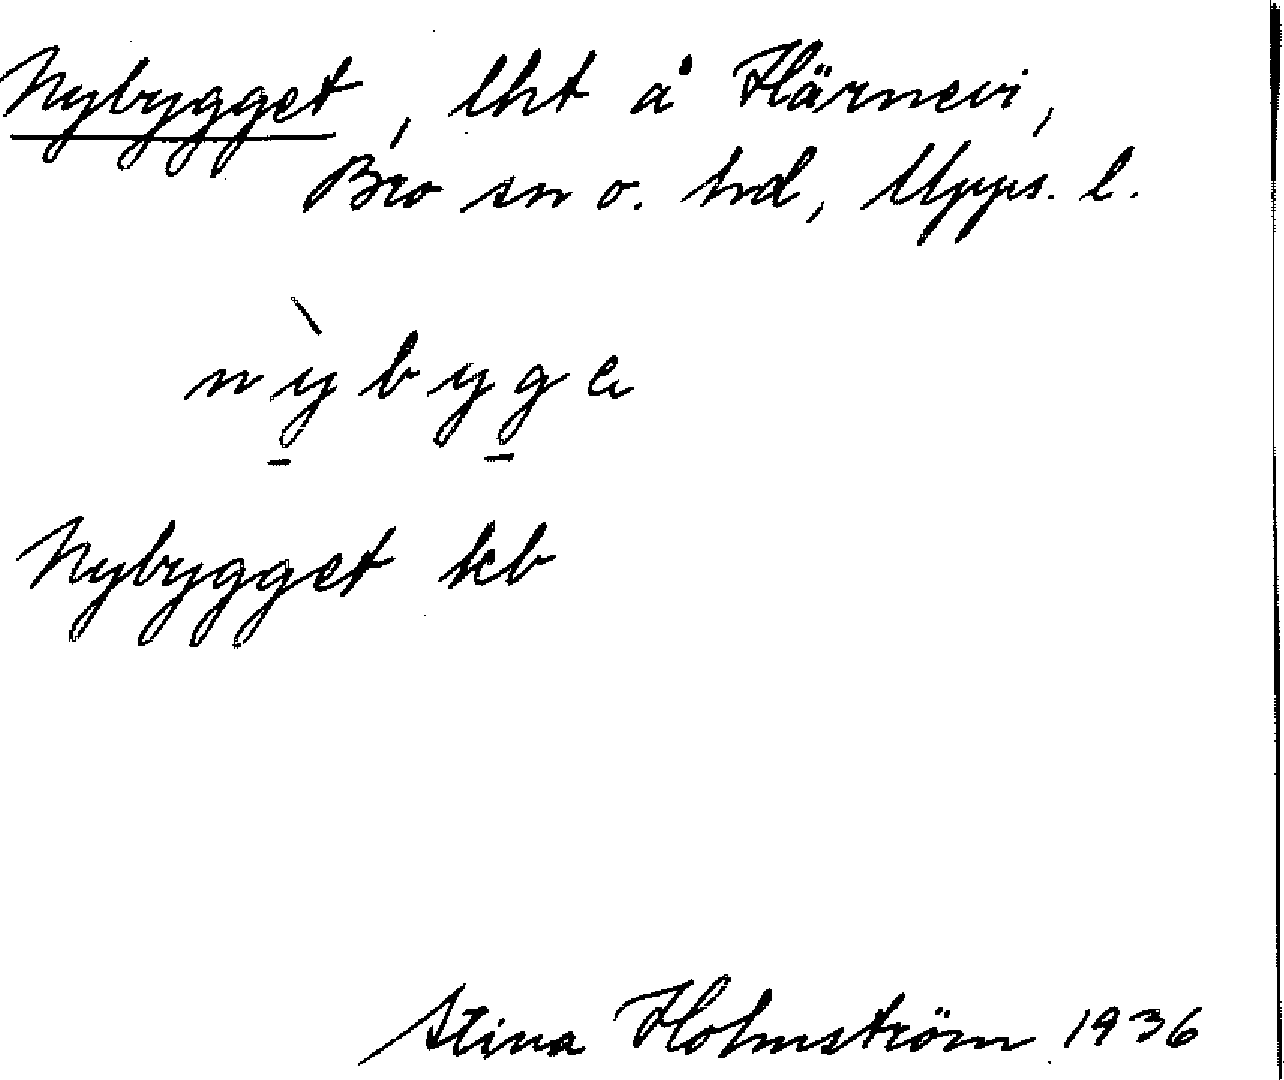 Nybygget, lht å Härnevi,
Bro sn o. hd, Upps. l.
nỳbyge
Nybygget kb
Stina Holmström 1936